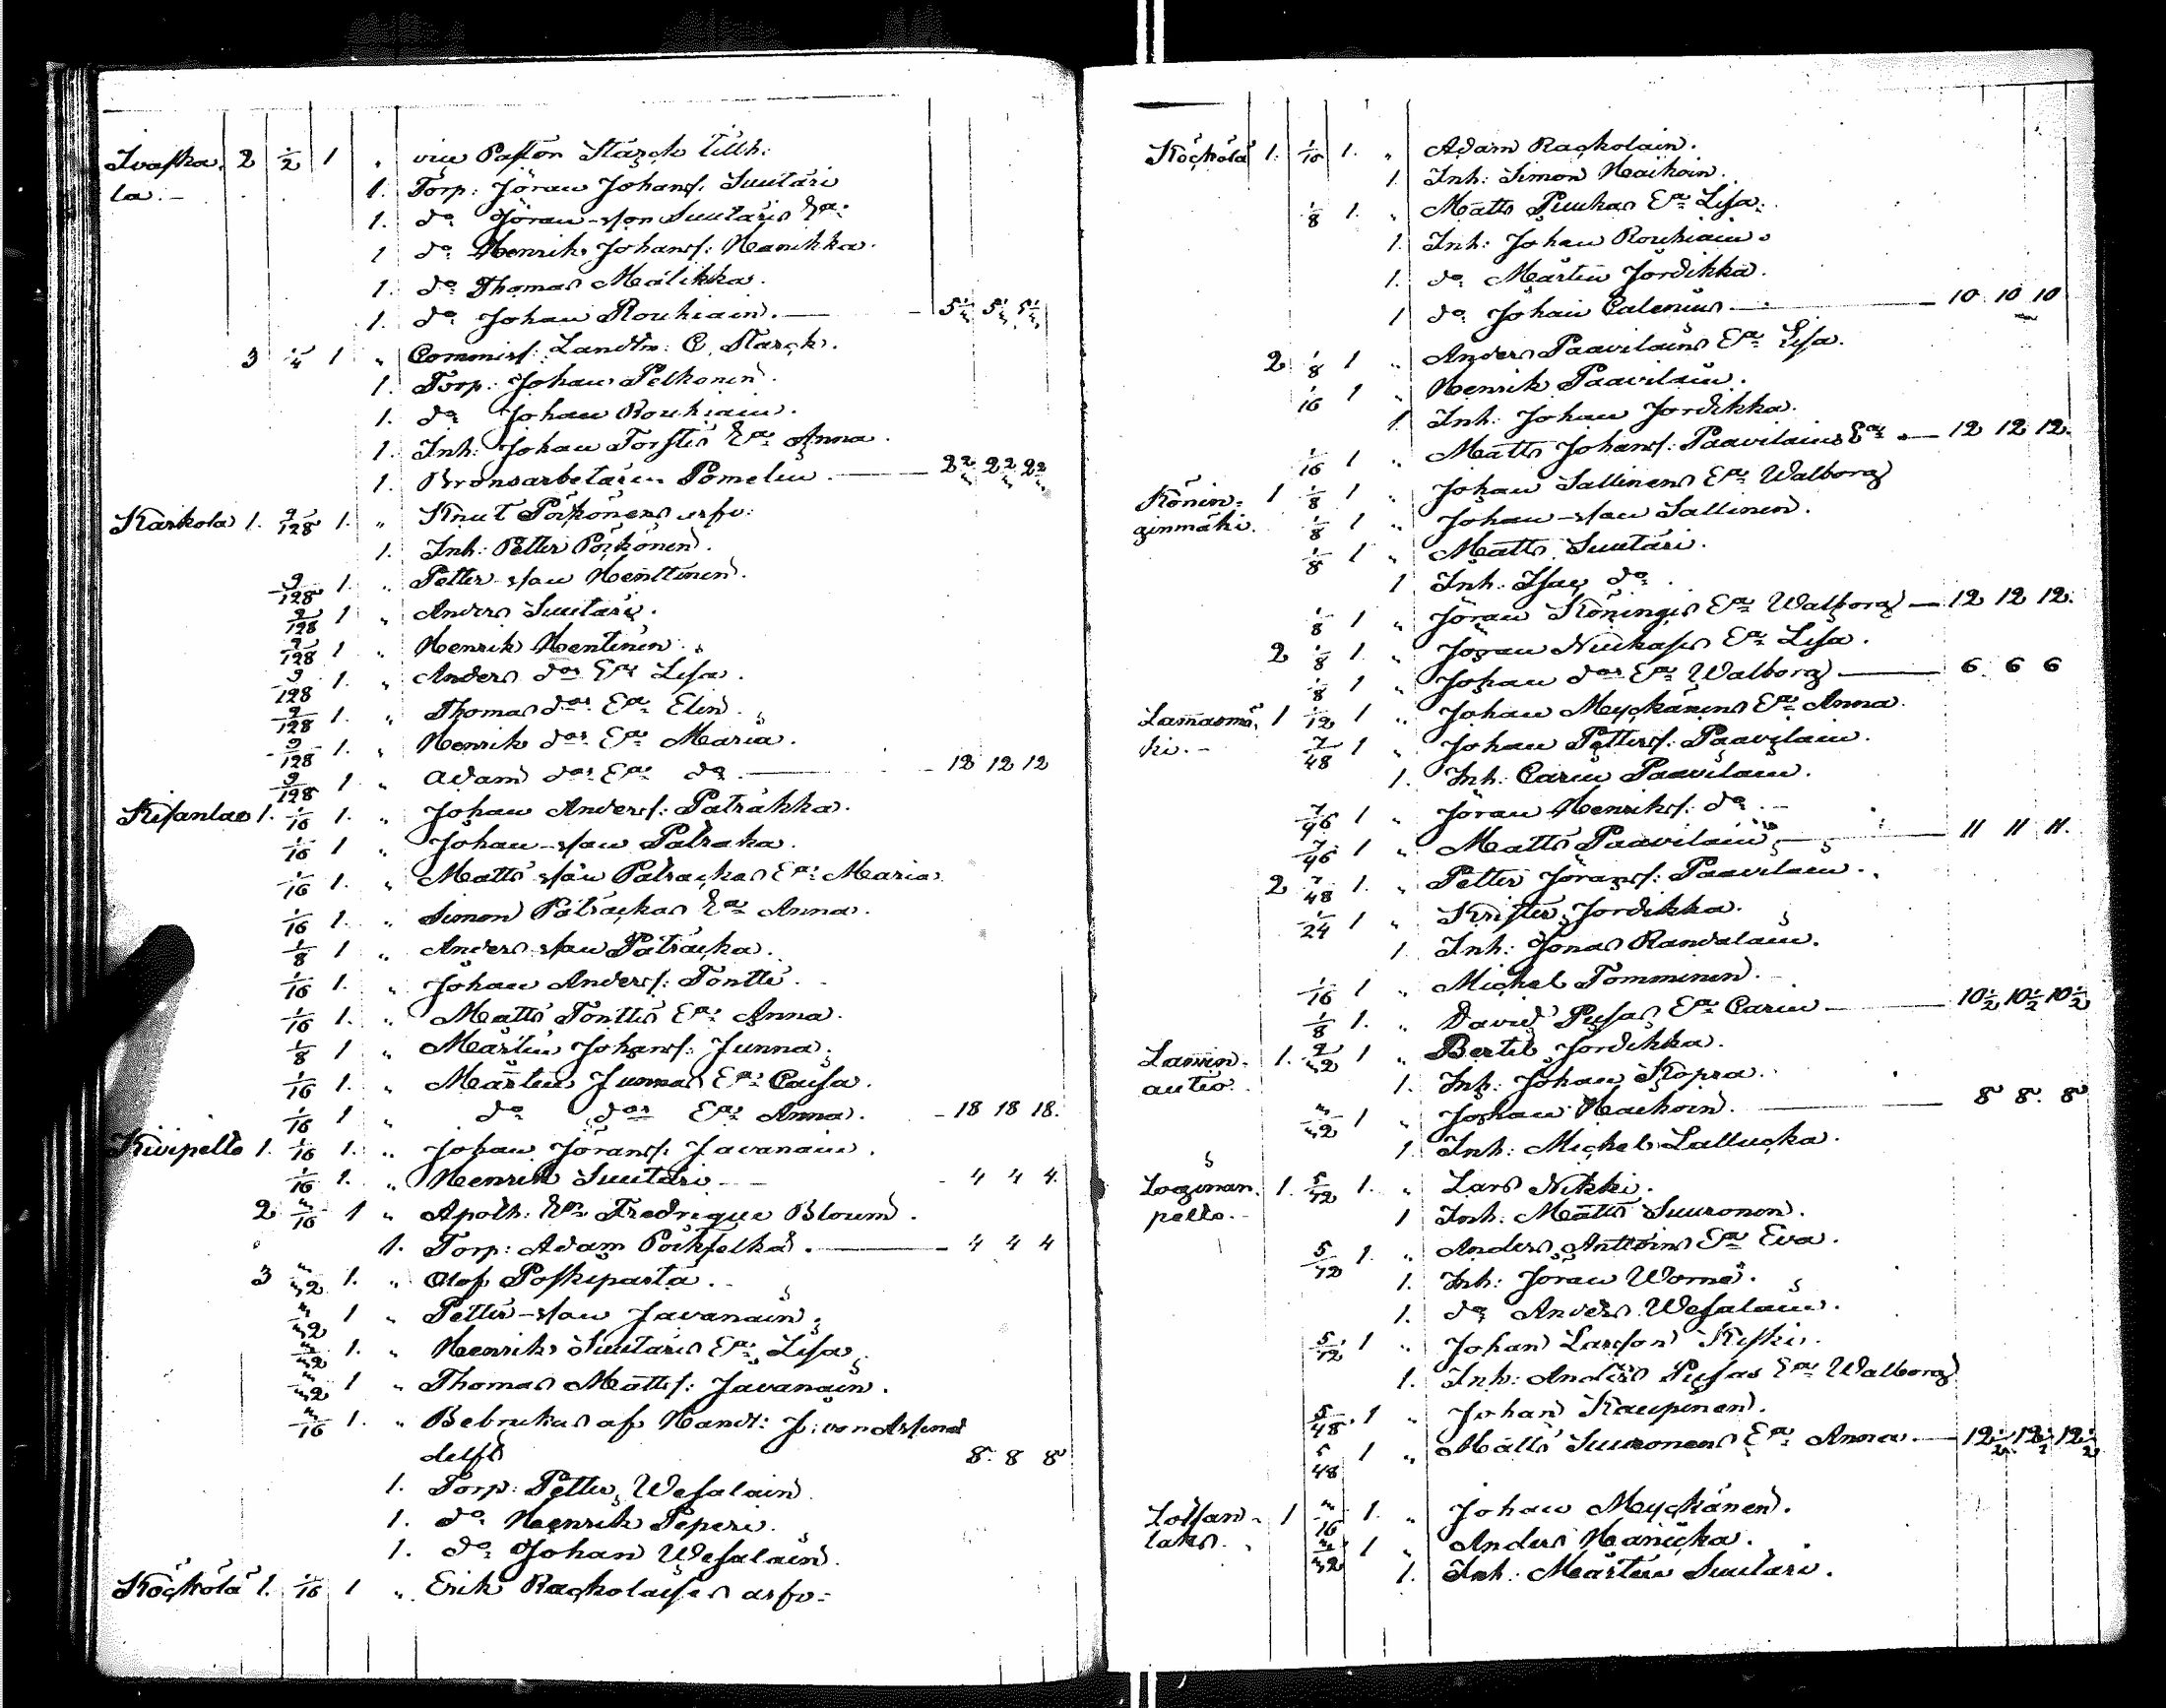 Ivaska- 2 1/2 1 " vice Pastor Starck tillh:
la.- 1. Torp: Jöran Johans: Suutari
1. do Jöran-son Suutaris Ea:
1 do Henrik Johans: Hanikka.
1. do Thomas Mälikka.
1. do Johan Rouhiain. — 5 1/2 5 1/2 5 1/2
3 1/4 1 " Commiss: Landtm: C. Starck.
1. Torp: Johan Pelkonen.
1. do Johan Rouhiain.
1. Inh: Johan Torstis Ea Anna.
1. Pomelin —
Karkola 1. 9/128 1. " Knut Pörkönens arfv:
1. Inh: Petter Pörkönen.
9/128 1. " Petter-son Henttinen.
9/128 1 " Anders Suutari.
9/128 1 " Henrik Hentinen.
9/128 1. " Anders dos Ea Lisa.
9/128 1. " Thomas dos Ea Elin.
9/128 1. " Henrik dos Ea Maria.
9/128 1 " Adam dos Ea do — 12 12 12
1. 1/16 1. " Johan Anders: Paträkka.
1/16 1 " Johan-son Patraka.
1/16 1. " Matts-son Patrackas Ea: Maria.
1/16 1. " Simon Päträckas Ea Anna.
1/8 1 " Anders-son Päträcka.
1/16 1. " Johan Anders: Tontti.
1/16 1. " Matts Tonttis Ea: Anna.
1/8 1 " Mårten Johans: Junna.
1/16 1. " Mårten Junnas Ea: Caisa.
1/16 1 " do dos Ea: Anna. - 18 18 18.
Kivipelto 1. 1/16 1. " Johan Jörans: Javanain.
1/16 1. " Henrik Suutari - 4 4 4.
2 3/16 1 " Apoth: Ea Fredrique Bloum.
1. Torp: Adam — 4 4 4
3 3/32 1. " Olof Poskiparta.
3/32 1 " Petter-son Javanain.
3/32 1. " Henrik Suutaris Ea Lisa
3/32 1 " Thomas Matts: Javanain.
3/16 1. " Bebrukas af Handl: J:
delft 8. 8 8
1. Torp: Petter Wesalain
1. do Henrik Peperi.
1. do Johan Wesalain.
Köckölä 1. 1/16 1 " Erik Rackolaises arfv:
Köckölä 1. 1/16 1. " Adam Rackolain.
1. Inh: Simon Haikoin.
1/8 1. " Matts Puukas Ea Lisa.
1. Inh: Johan Rouhiain.
1. do Mårten Jordikka.
1 do Johan Calenius — 10 10 10
2 1/8 1 " Anders Paavilains Ea Lisa.
1/16 1 " Henrik Paavilain.
1 Inh: Johan Jordikka.
1/16 1 " Matts Johans: Paavilains Ea — 12 12 12.
Könin- 1 1/8 1 " Johan Sallinens Ea Walborg
ginmäki. 1/8 1 " Johan-son Sallinen.
1/8 1 " Matts Suutari.
1 Inh: Isac do.
1/8 1 " Jöran Köningis Ea Walborg — 12 12 12.
2 1/8 1. " Jöran Ea Lisa.
1/8 1 " Johan dos Ea Walborg — 6. 6 6
Lamasmä- 1 1/12 1 " Johan Myckänens Ea Anna.
ki.- 7/48 1 " Johan Petters: Paavilain.
1. Inh: Carin Paavilain.
7/96 1 " Jöran Henriks: do
7/96 1 " Matts Paavilain — 11 11 11.
2 7/48 1. " Petter Jörans: Paavilain.
1/24 1 " Krister Jordikka.
1 Inh: Jonas Randalain.
1/16 1 " Michel Tomminen.
1/8 1. " David Pusas Ea Carin — 10 1/2 10 1/2 10 1/2
Lamin- 1. 9/32 1 " Bertil Jordikka.
autio. 1. Inh: Johan Kopra.
3/32 1 " Johan Haikoin. — 8 8. 8
1. Inh: Michel Lallucka.
1. 5/12 1. " Lars Nikki.
pelto.- 1 Inh: Matts Suuronen.
5/12 1. " Anders Anttoins Ea Eva.
1. Inh: Jöran Worna.
1. do Anders Wesalain.
5/12 1 " Johan Larsson Kiski.
1. Inh: Anders Pusas Ea Walborg
5/48 1 " Johan Kaupinen.
5/48 1 " Matts Suuronens Ea Anna — 12 1/2 12 1/2 12 1/2
1 3/16 1. " Johan Myckänen.
laks. 3/32 1 " Anders Hanicka.
1. Inh: Mårten Suutari.